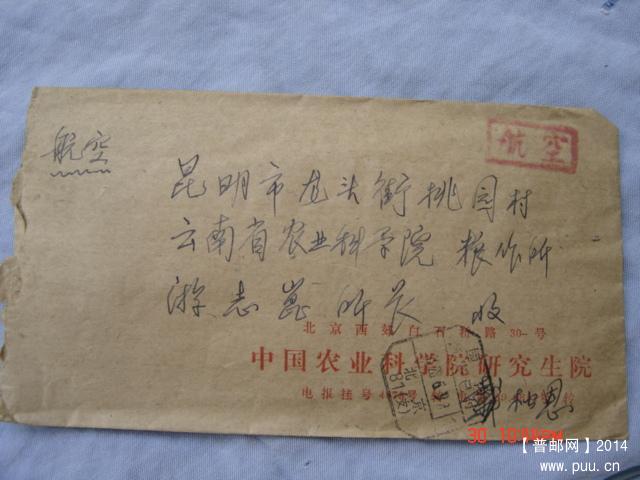 航空
航空
昆明市龙头街桃园村
云南省农业科学院 粮作所
游志崑所长 收
北京西郊白石桥路30号
中国农业科学院研究生院
电报挂号
北京
81(支)
柏恩
30 10
【普邮网】2014
www.puu.cn